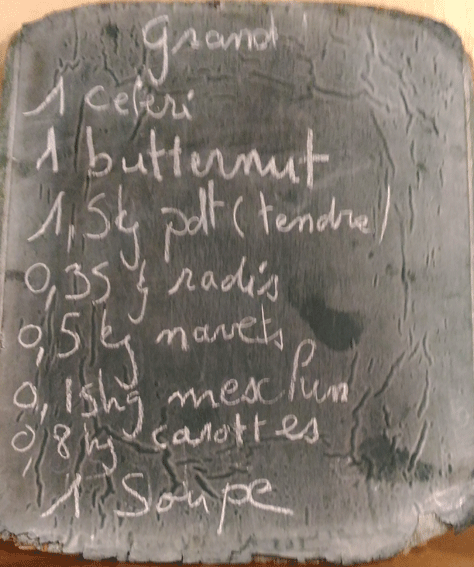 Grand
1 celeri
1 butternut
1,5kg pdt (tendre)
0,35 kg radis
0,5 kg navets
0,15kg mesclun
0,8 kg carottes
1 Soupe